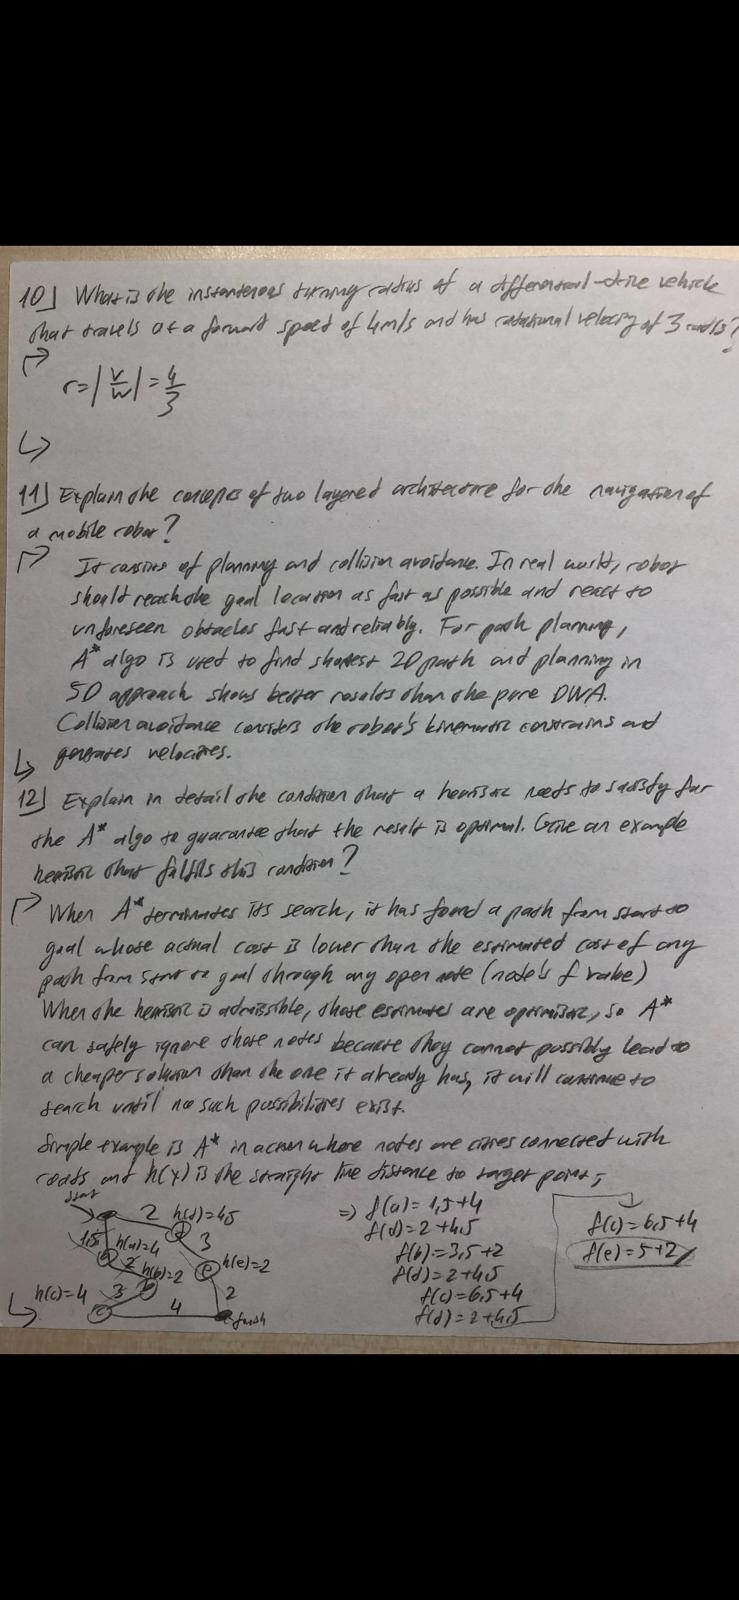 10] What is the instantenous turning radius of a differential-drive vehicle
that travels at a forward speed of 4m/s and has rotational velocity of 3 rad/s?
r=|v/w|=4/3
11] Explain the concepts of two layered architecture for the navigation of
a mobile robot?
It consists of planning and collision avoidance. In real world, robot
should reach the goal location as fast as possible and react to
unforeseen obstacles fast and reliably. For path planning,
A* algo is used to find shortest 2D path and planning in
5D approach shows better results than the pure DWA.
Collision avoidance considers the robot's kinematic constrains and
generates velocities.
12] Explain in detail the condition that a heuristic needs to satisfy for
the A* algo to guarantee that the result is optimal. Give an example
heuristic that fulfills this condition?
When A* terminates its search, it has found a path from start to
goal whose actual cost is lower than the estimated cost of any
path from start to goal through any open node (node's f value)
When the heuristic is admissible, those estimates are optimistic, so A*
can safely ignore those nodes because they cannot possibly lead to
a cheaper solution than the one it already has, it will continue to
search until no such possibilities exist.
Simple example is A* in action where nodes are cities connected with
roads and h(x) is the straight line distance to target point;
start
2 h(d)=4,5
1,5 h(a)=4 d 3
a 2 h(b)=2 e h(e)=2
h(c)=4 3 b 2
c 4 finish
=> f(a)=1,5+4
f(d)=2+4,5
f(b)=3,5+2
f(d)=2+4,5
f(c)=6,5+4
f(d)=2+4,5
f(c)=6,5+4
f(e)=5+2